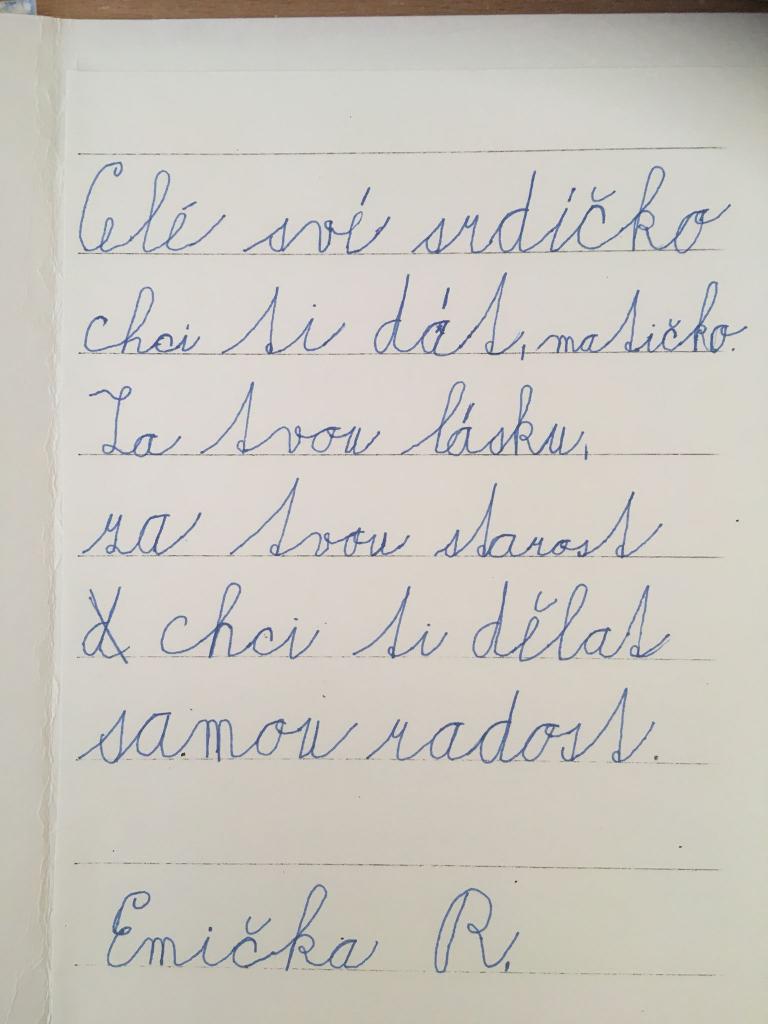 Celé své srdíčko
chci ti dát, matičko.
Za tvou lásku,
za tvou starost
chci ti dělat
samou radost.
Emička R.